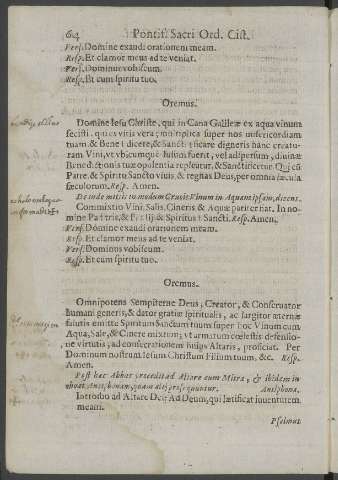 604 Pontif. Sacri Ord. Cist.
Vers. Domine exaudi orationem meam.
Resp. Et clamor meus ad te veniat.
Vers. Dominus vobiscum.
Resp. Et cum spiritu tuo.
Oremus.
Domine Iesu Christe, qui in Cana Galileæ ex aqua vinum
fecisti, qui es vitis vera; multiplica super nos misericordiam
tuam, & Bene † dicere, & Sancti † ficare digneris hanc creatu-
ram Vini, vt vbicumque fusum fuerit, vel adspersum, divinæ
Benedictionis tuæ opulentia repleatur, & Sanctificetur. Qui cū
Patre, & Spiritu Sancto vivis, & regnas Deus, per omnia sæcula
sæculorum. Resp. Amen.
Deinde mittit in modum Crucis Vinum in Aquam ipsam, dicens.
Commixtio Vini, Salis, Cineris, & Aquæ pariter fiat. In no-
mine Pa † tris, & Fi † lij, & Spiritus † Sancti. Resp. Amen.
Vers. Domine exaudi orationem meam.
Resp. Et clamor meus ad te veniat.
Vers. Dominus vobiscum.
Resp. Et cum spiritu tuo.
Oremus.
Omnipotens Sempiterne Deus, Creator, & Conservator
humani generis, & dator gratiæ spiritualis, ac largitor æternæ
salutis emitte Spiritum Sanctum tuum super hoc Vinum cum
Aqua, Sale, & Cinere mixtum; vt armatum cœlestis defensio-
ne virtutis, ad consecrationem huius Altaris, proficiat. Per
Dominum nostrum Iesum Christum Filium tuum, &c. Resp.
Amen.
Post hæc Abbas accedit ad Altare cum Mitra, & ibidem in-
choat, Antiphonam, quam alij prosequuntur. Antiphona.
Introibo ad Altare Dei: Ad Deum, qui lætificat iuventutem
meam.
Psalmus